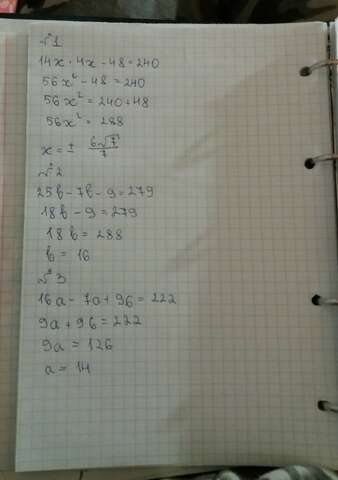 №1
14x · 4x - 48 = 240
56x² - 48 = 240
56x² = 240 + 48
56x² = 288
x = ± 6√7/7
№2
25b - 7b - 9 = 279
18b - 9 = 279
18b = 288
b = 16
№3
16a - 7a + 96 = 222
9a + 96 = 222
9a = 126
a = 14